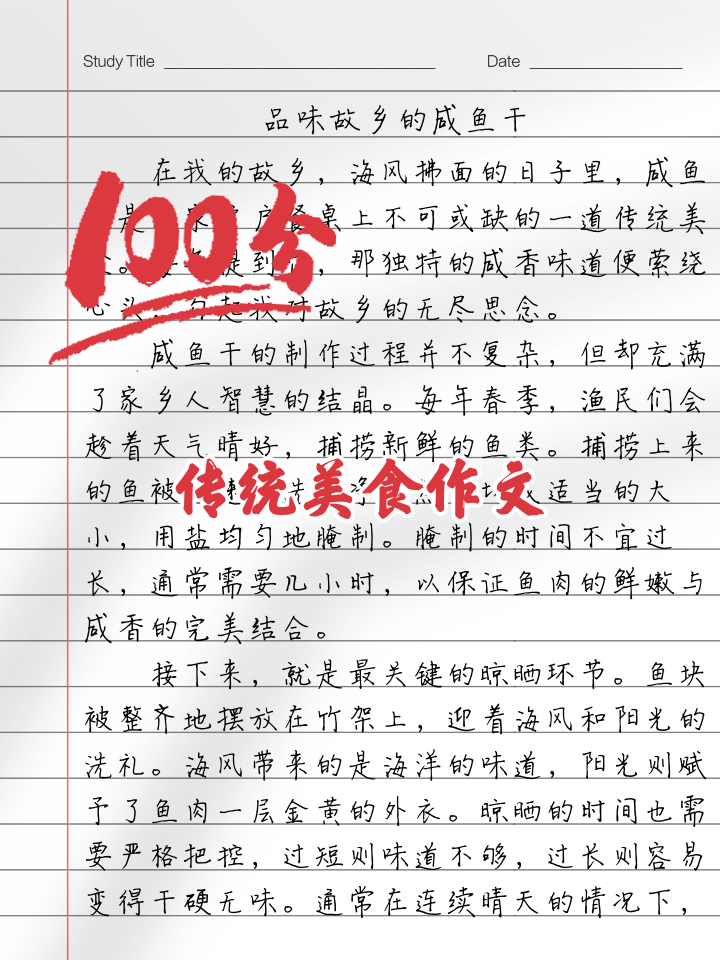 Study Title
Date
品味故乡的咸鱼干
在我的故乡，海风拂面的日子里，咸鱼
100分
是家户餐桌上不可或缺的一道传统美
提到，那独特的咸香味道便萦绕
心头，勾起我对故乡的无尽思念。
咸鱼干的制作过程并不复杂，但却充满
了家乡人智慧的结晶。每年春季，渔民们会
趁着天气晴好，捕捞新鲜的鱼类。捕捞上来
的鱼被适当的大
传统美食作文
小，用盐均匀地腌制。腌制的时间不宜过
长，通常需要几小时，以保证鱼肉的鲜嫩与
咸香的完美结合。
接下来，就是最关键的晾晒环节。鱼块
被整齐地摆放在竹架上，迎着海风和阳光的
洗礼。海风带来的是海洋的味道，阳光则赋
予了鱼肉一层金黄的外衣。晾晒的时间也需
要严格把控，过短则味道不够，过长则容易
变得干硬无味。通常在连续晴天的情况下，